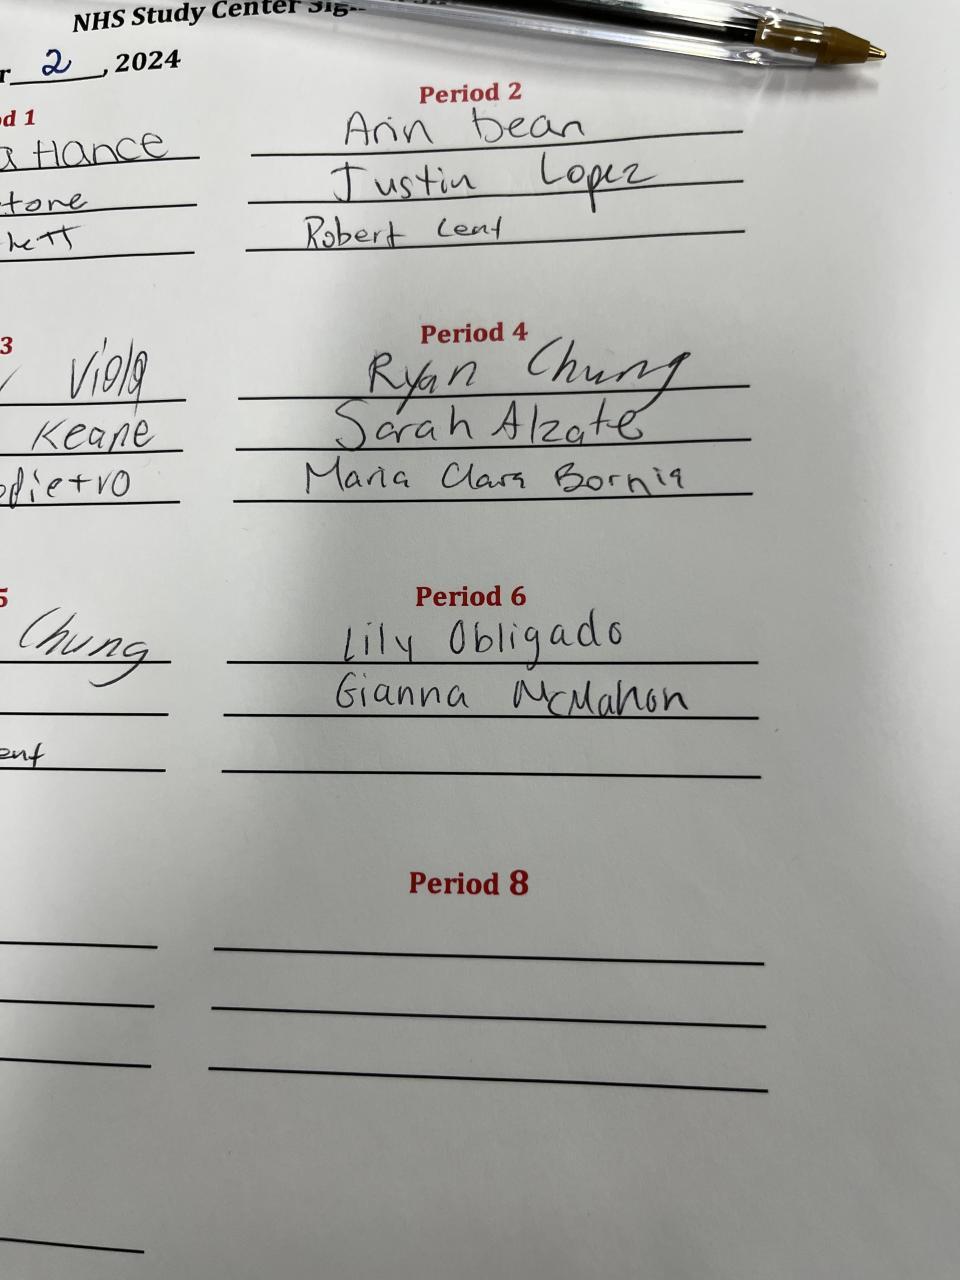 NHS Study Center Sig
r 2, 2024
d 1
Period 2
a Hance
Arin Dean
tone
Justin Lopez
hett
Robert Cent
3
Period 4
Viola
Ryan Chung
Keane
Sarah Alzate
odietro
Maria Clara Bornia
5
Period 6
Chung
Lily Obligado
Gianna McMahon
ent
Period 8